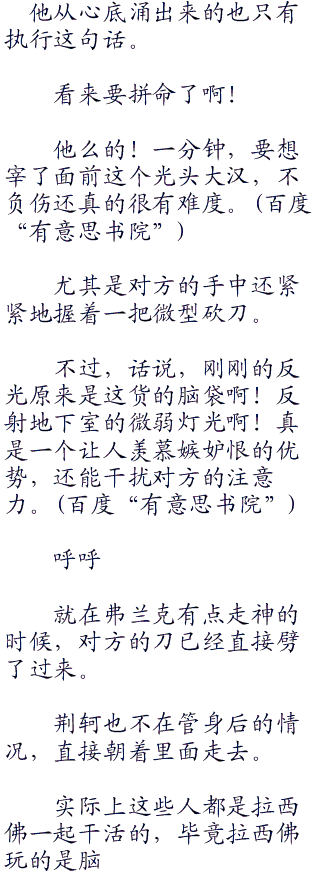 他从心底涌出来的也只有
执行这句话。
看来要拼命了啊！
他么的！一分钟，要想
宰了面前这个光头大汉，不
负伤还真的很有难度。(百度
“有意思书院”)
尤其是对方的手中还紧
紧地握着一把微型砍刀。
不过，话说，刚刚的反
光原来是这货的脑袋啊！反
射地下室的微弱灯光啊！真
是一个让人羡慕嫉妒恨的优
势，还能干扰对方的注意
力。(百度“有意思书院”)
呼呼
就在弗兰克有点走神的
时候，对方的刀已经直接劈
了过来。
荆轲也不在管身后的情
况，直接朝着里面走去。
实际上这些人都是拉西
佛一起干活的，毕竟拉西佛
玩的是脑